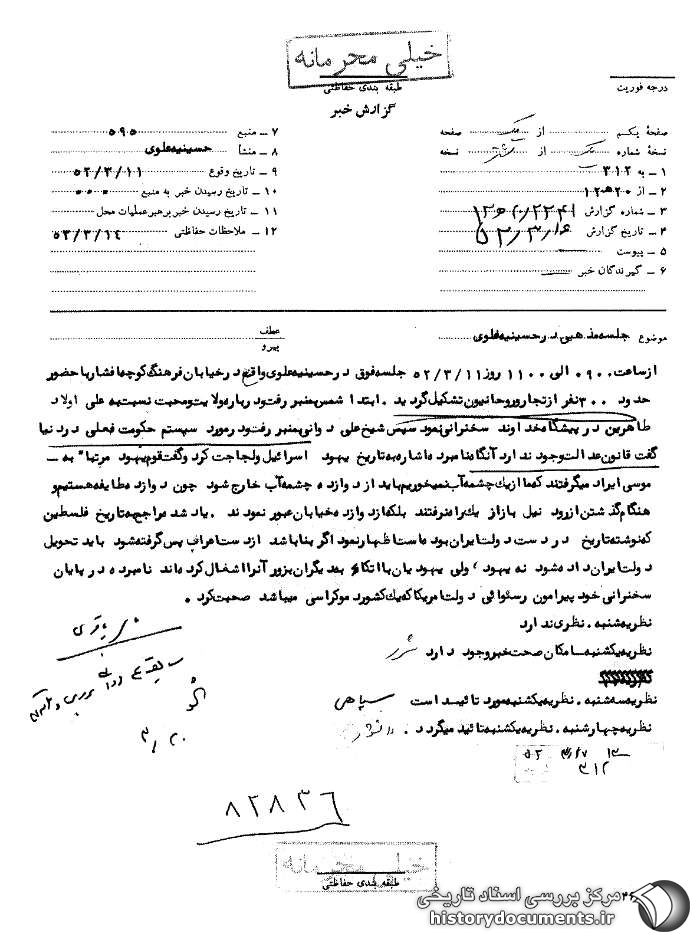 خیلی محرمانه
طبقه بندی حفاظتی
گزارش خبر
درجه فوریت
صفحهٔ یکم از یک صفحه
نسخهٔ شماره یک از نسخه
۱ ـ به ۳۱۲
۲ ـ از ۲۰ه۱۲
۳ ـ شماره گزارش
۴ ـ تاریخ گزارش
۵ ـ پیوست
۶ ـ گیرندگان خبر
۷ ـ منبع ۵۹۵
۸ ـ منشأ حسینیه علوی
۹ ـ تاریخ وقوع ۵۲/۳/۱۱
۱۰ ـ تاریخ رسیدن خبر به منبع
۱۱ ـ تاریخ رسیدن خبر برهبر عملیات محل
۱۲ ـ ملاحظات حفاظتی ۵۳/۳/۱۴
موضوع جلسه مذهبی در حسینیه علوی
عطف
پیرو
از ساعت ۰۹۰۰ الی ۱۱۰۰ روز ۵۲/۳/۱۱ جلسه فوق در حسینیه علوی واقع در خیابان فرهنگ کوچه افشار با حضور
حدود ۳۰۰ نفر از تجار و روحانیون تشکیل گردید . ابتدا شمس بمنبر رفت و درباره ولایت و محبت نسبت به علی اولاد
طاهرین در پیشگاه خداوند سخنرانی نمود سپس شیخ علی دوانی بمنبر رفت و در مورد سیستم حکومت فعلی در دنیا
گفت قانون عدالت وجود ندارد آنگاه نامبرده اشاره به تاریخ یهود اسرائیل و لجاجت کرد و گفت قوم یهود مرتبا" به ـ
موسی ایراد میگرفتند که ما از یک چشمه آب نمیخوریم باید از دوازده چشمه آب خارج شود چون دوازده طایفه هستیم و
هنگام گذشتن از رود نیل باز از یک راه نرفتند بلکه از دوازده خیابان عبور نمودند . یاد شده راجع به تاریخ فلسطین
که نوشته تاریخ در دست دولت ایران بوده است اظهار نمود اگر بنا باشد از دست اعراب پس گرفته شود باید تحویل
دولت ایران داده شود نه یهود ، ولی یهودیان با اتکاء به دیگران بزور آنرا اشغال کرده اند نامبرده در پایان
سخنرانی خود پیرامون رسوائی دولت امریکا که یک کشور دموکراسی میباشد صحبت کرد .
نظریه شنبه . نظری ندارد
نظریه یکشنبه . امکان صحت خبر وجود دارد
نظریه سه شنبه . نظریه یکشنبه مورد تائید است سپاهی
نظریه چهارشنبه . نظریه یکشنبه تائید میگردد .
۳۱۲
۸۲۸۳۶
خیلی محرمانه
طبقه بندی حفاظتی
مرکز بررسی اسناد تاریخی
historydocuments.ir